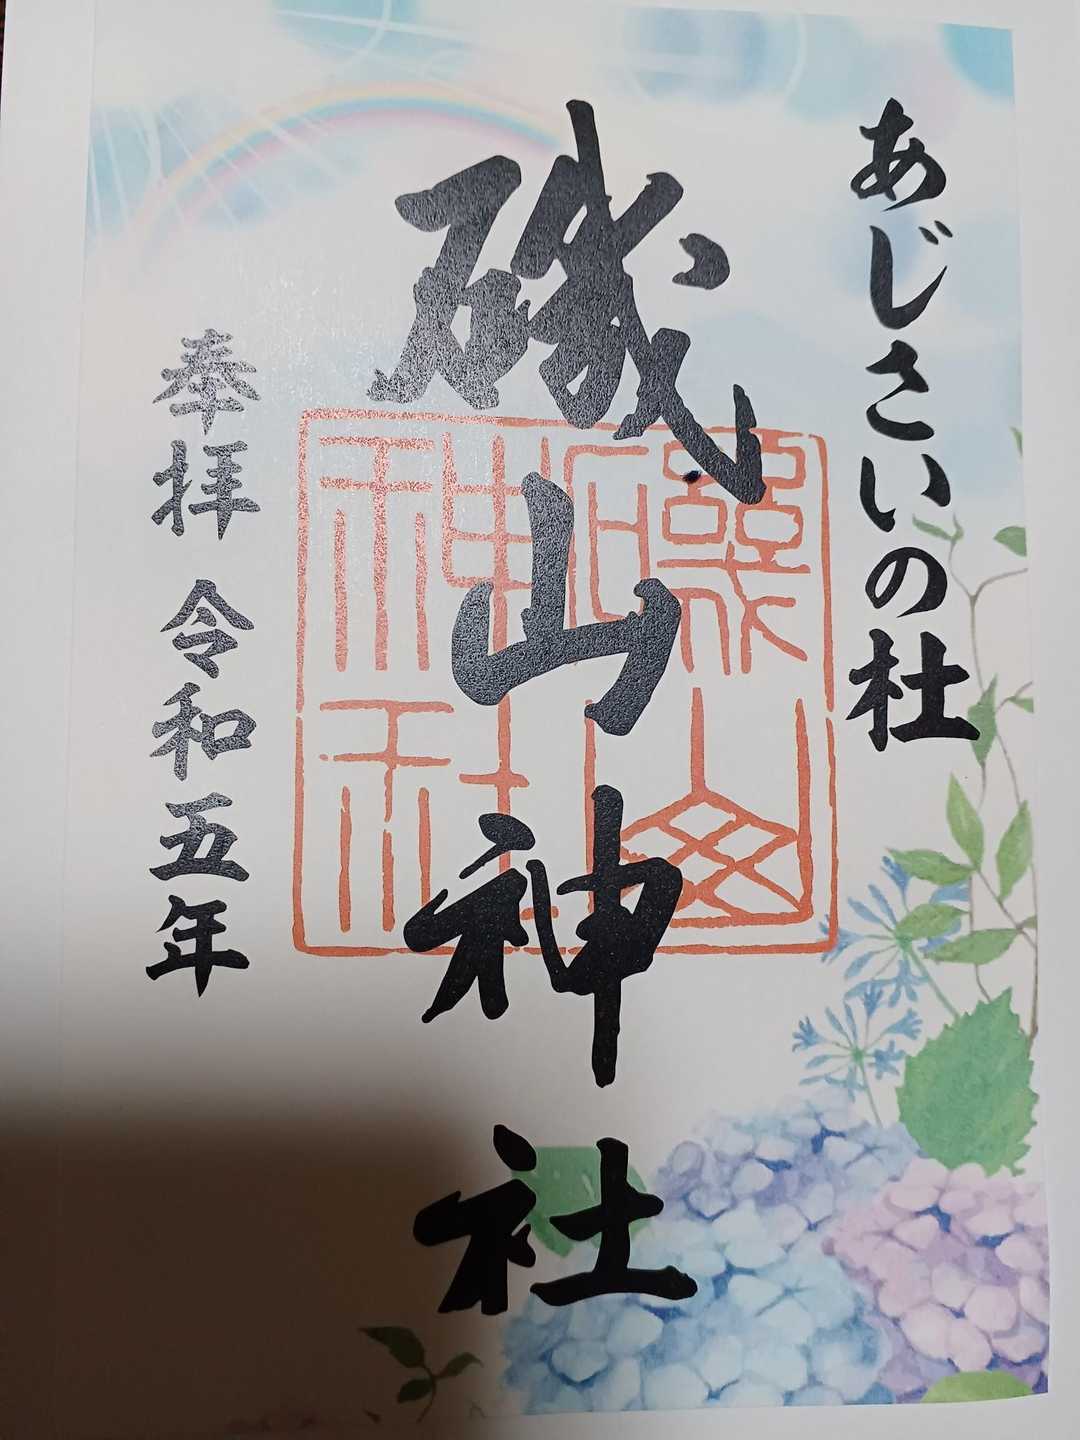 あじさいの杜
磯山神社
奉拝 令和五年
磯山
神社